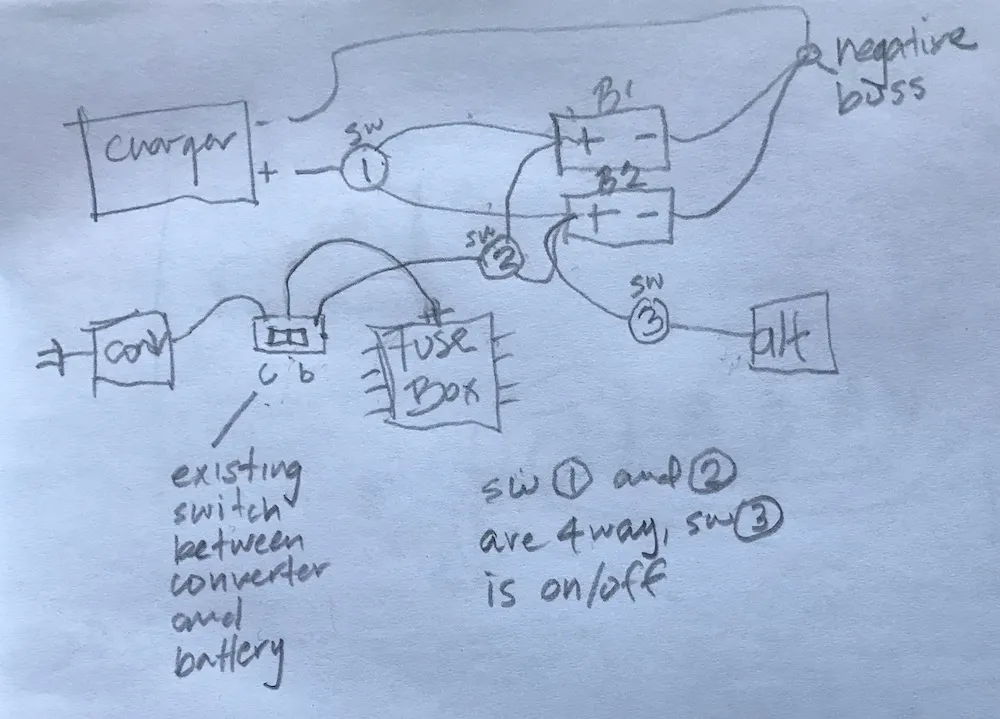 B1
negative
buss
charger
-
+
sw
1
+ -
B2
+ -
sw
2
sw
3
conv
c b
fuse
Box
alt
existing
switch
between
converter
and
battery
sw ① and ②
are 4way, sw ③
is on/off